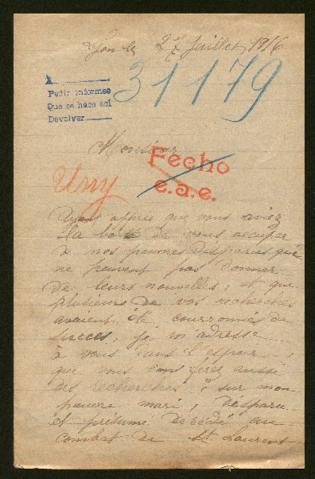 Lyon le 27 Juillet 1916
31179
A
Pedir informes
Que se hace así
Devolver
Monsieur
Fecho
e.a.e.
Urg
Ayant appris que vous aviez
la bonté de vous occuper
de nos pauvres disparus qui
ne peuvent pas donner
de leurs nouvelles, et que
plusieurs de vos recherches
avaient été couronnées de
succès, je m'adresse
à vous dans l'espoir
que vous ferez aussi
des recherches sur mon
pauvre mari, disparu
et présumé décédé au
combat de St Laurent